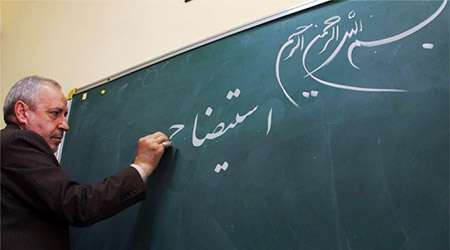 بسم الله الرحمن الرحیم
استیضاح